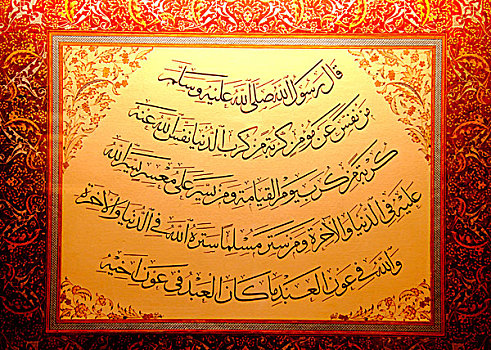 قال رسول الله صلى الله عليه وسلم
من نفس عن مؤمن كربة من كرب الدنيا نفس الله عنه
كربة من كرب يوم القيامة ومن يسر على معسر يسر الله
عليه في الدنيا والآخرة ومن ستر مسلما ستره الله في الدنيا والآخرة
والله في عون العبد ما كان العبد في عون أخيه